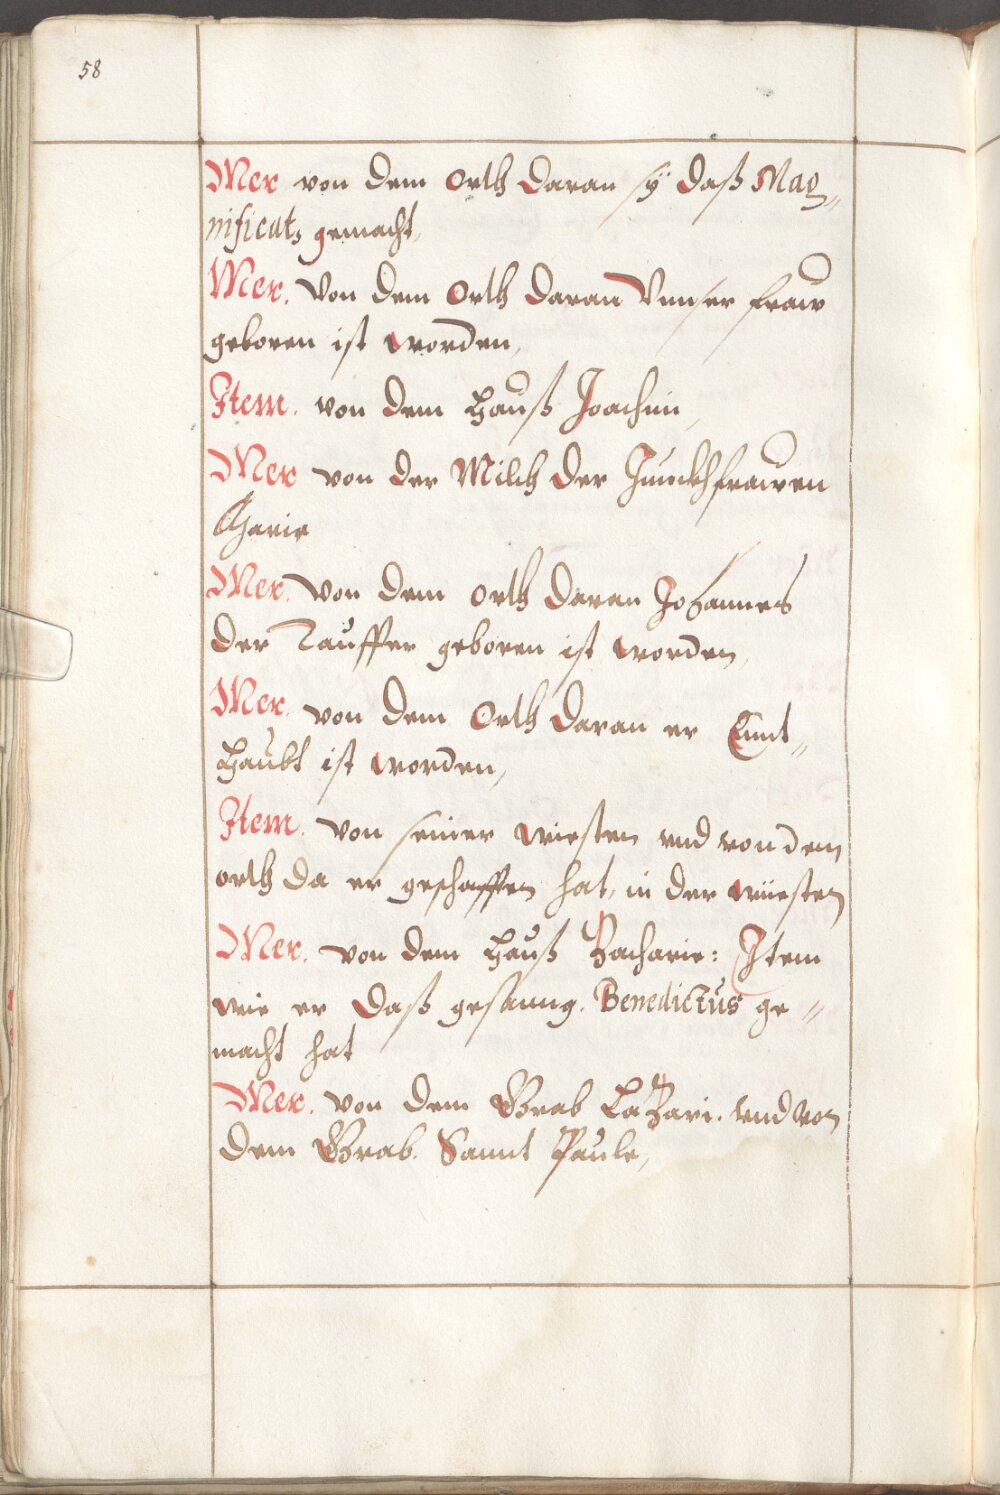 58
Mer von dem Orth daran sÿ daß Mag„
nificat, gemacht,
Mer. Von dem Orth daran Vnnser fraw
geboren ist worden,
Item. von dem Hauß Joachim,
Mer von der Milch der Junckhfrawen
Marie
Mer. von dem orth daran Johannes
der Tauffer geboren ist worden,
Mer. von dem Orth daran er Ennt„
Haubt ist worden,
Item. von seiner wiesten vnd von dem
orth da er geschaffen hat, in der wüesten
Mer. von dem Hauß Zacharie: Item
wie er daß gesanng. Benedictus ge„
macht hat
Mer. von dem Grab Lazari. vnd von
dem Grab. Sannt Paule,